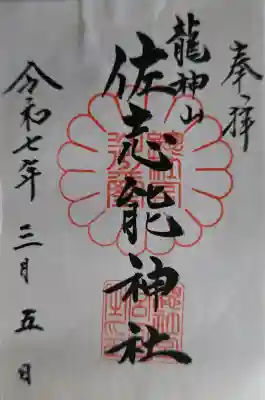 奉拝
龍神山
佐志能神社
令和七年三月五日